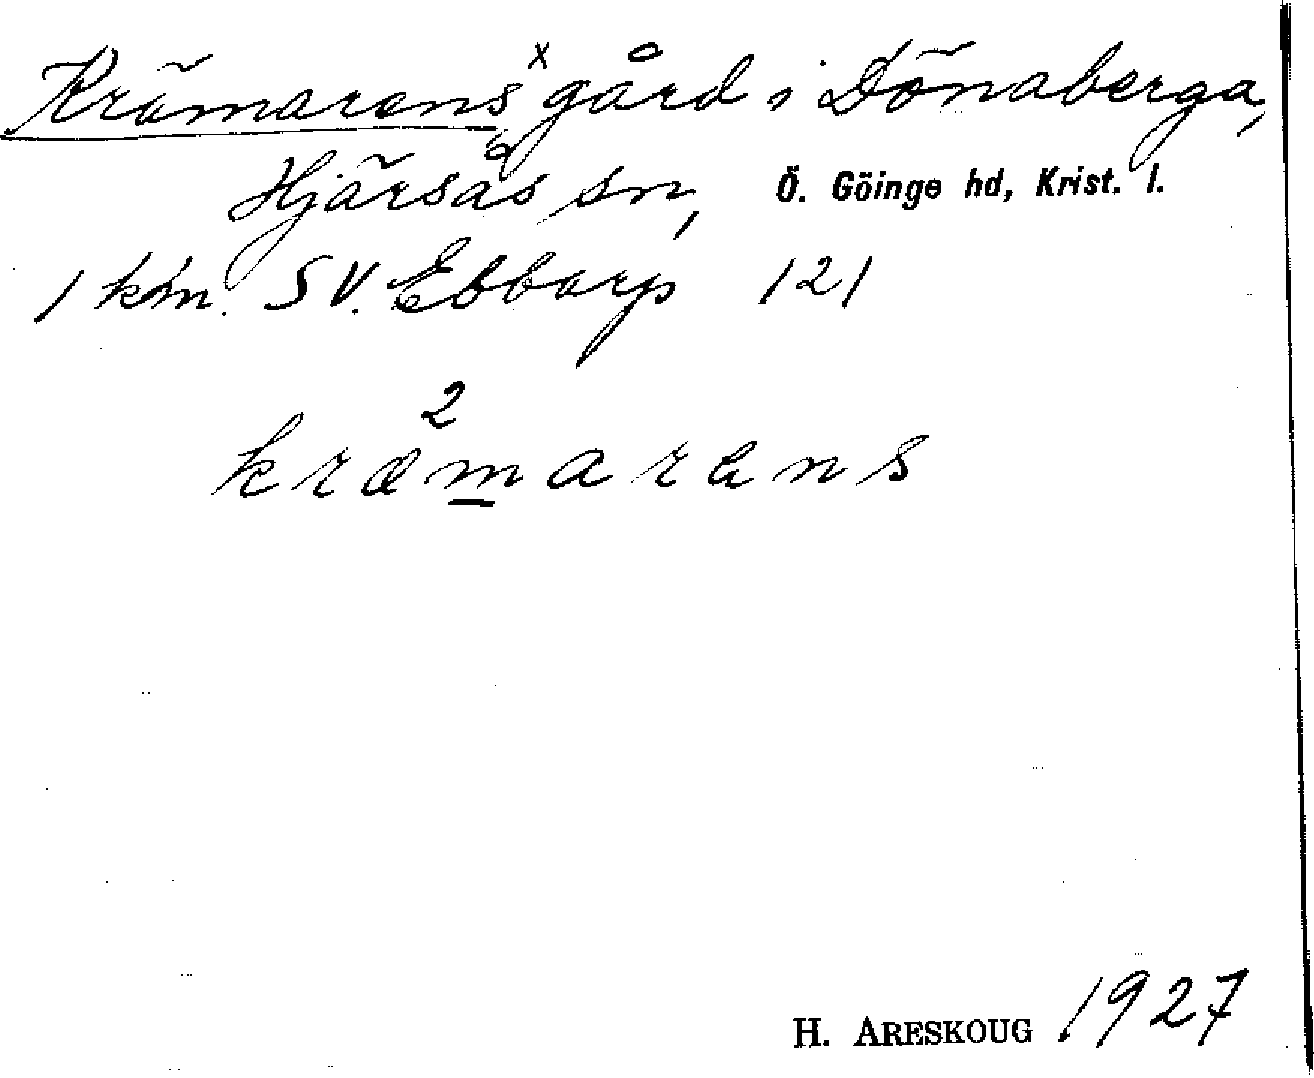 Krämarens x gård i Dönaberga,
Hjärsås sn, Ö. Göinge hd, Krist. l.
1 km. SV. Ebbarp 121
2
kræmarens
H. ARESKOUG 1927